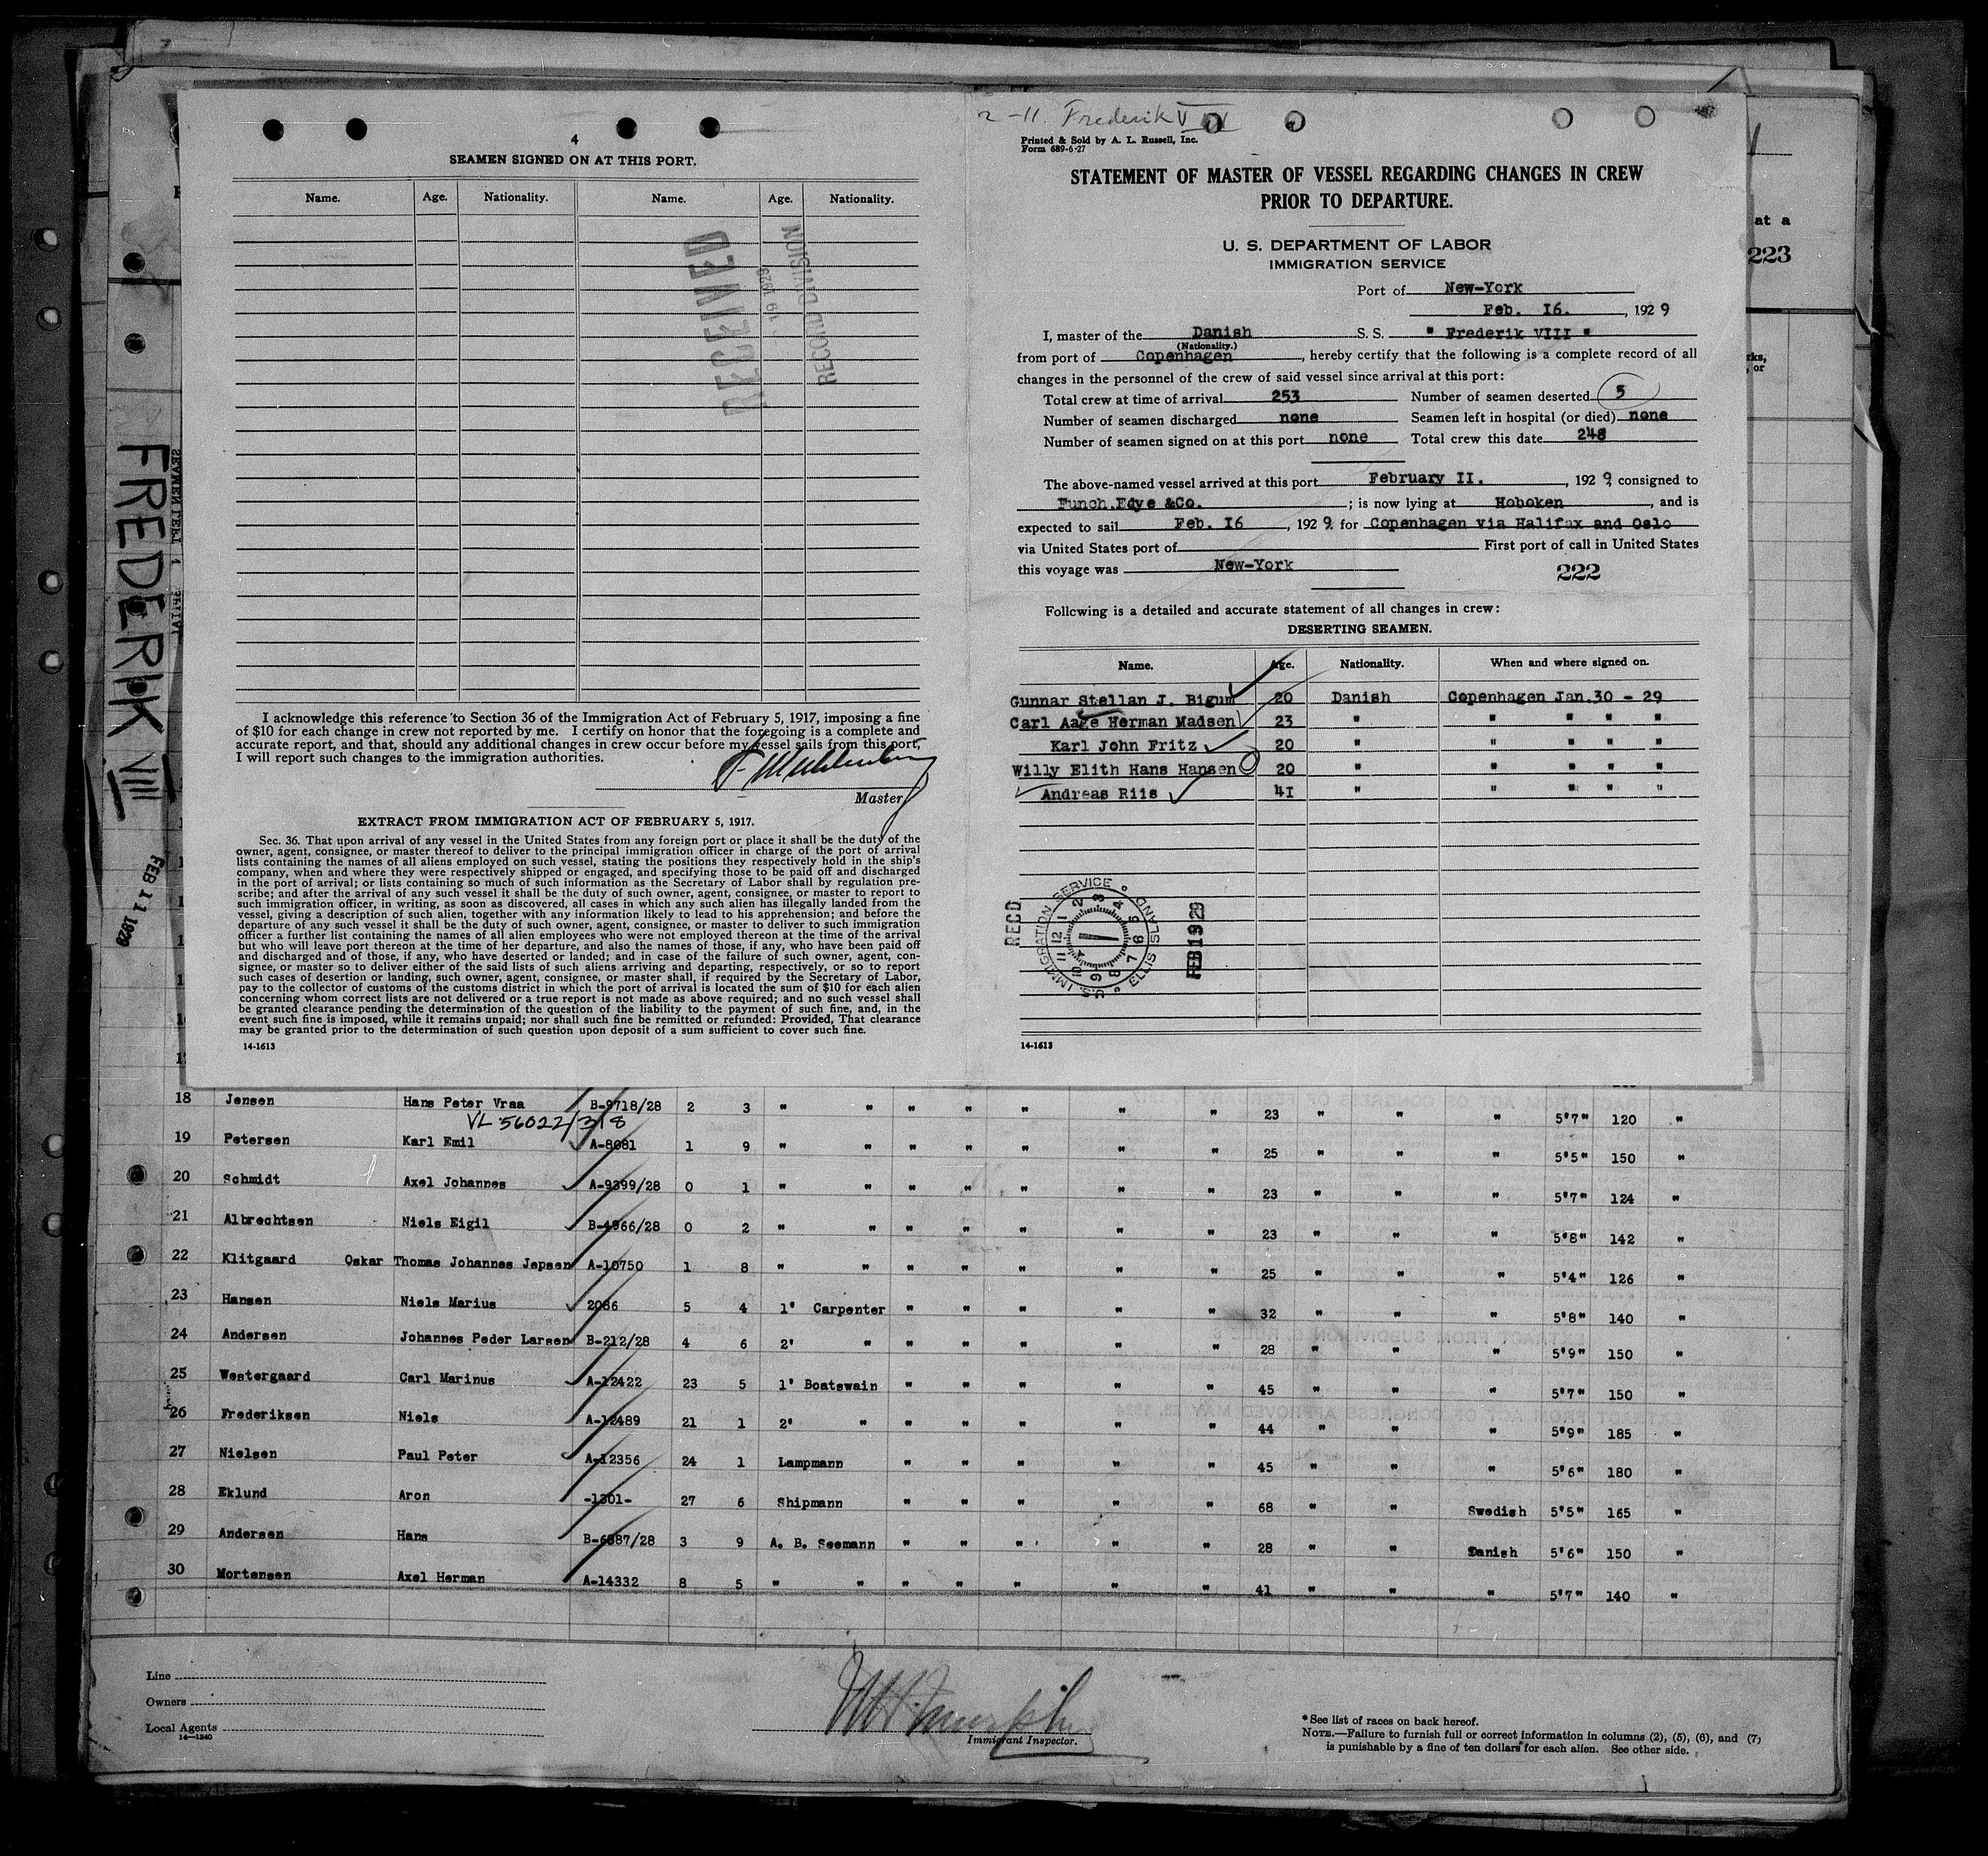 4
SEAMEN SIGNED ON AT THIS PORT.
Name. Age. Nationality. Name. Age. Nationality.
RECEIVED
19 1929
RECORD DIVISION
I acknowledge this reference to Section 36 of the Immigration Act of February 5, 1917, imposing a fine
of $10 for each change in crew not reported by me. I certify on honor that the foregoing is a complete and
accurate report, and that, should any additional changes in crew occur before my vessel sails from this port,
I will report such changes to the immigration authorities.
Master
EXTRACT FROM IMMIGRATION ACT OF FEBRUARY 5, 1917.
Sec. 36. That upon arrival of any vessel in the United States from any foreign port or place it shall be the duty of the
owner, agent, consignee, or master thereof to deliver to the principal immigration officer in charge of the port of arrival
lists containing the names of all aliens employed on such vessel, stating the positions they respectively hold in the ship's
company, when and where they were respectively shipped or engaged, and specifying those to be paid off and discharged
in the port of arrival; or lists containing so much of such information as the Secretary of Labor shall by regulation pre-
scribe; and after the arrival of any such vessel it shall be the duty of such owner, agent, consignee, or master to report to
such immigration officer, in writing, as soon as discovered, all cases in which any such alien has illegally landed from the
vessel, giving a description of such alien, together with any information likely to lead to his apprehension; and before the
departure of any such vessel it shall be the duty of such owner, agent, consignee, or master to deliver to such immigration
officer a further list containing the names of all alien employees who were not employed thereon at the time of the arrival
but who will leave port thereon at the time of her departure, and also the names of those, if any, who have been paid off
and discharged and of those, if any, who have deserted or landed; and in case of the failure of such owner, agent, con-
signee, or master so to deliver either of the said lists of such aliens arriving and departing, respectively, or so to report
such cases of desertion or landing, such owner, agent, consignee, or master shall, if required by the Secretary of Labor,
pay to the collector of customs of the customs district in which the port of arrival is located the sum of $10 for each alien
concerning whom correct lists are not delivered or a true report is not made as above required; and no such vessel shall
be granted clearance pending the determination of the question of the liability to the payment of such fine, and, in the
event such fine is imposed, while it remains unpaid; nor shall such fine be remitted or refunded: Provided, That clearance
may be granted prior to the determination of such question upon deposit of a sum sufficient to cover such fine.
14-1613
2-11. Frederik VIII
Printed & Sold by A. L. Russell, Inc.
Form 689-6-27
STATEMENT OF MASTER OF VESSEL REGARDING CHANGES IN CREW
PRIOR TO DEPARTURE.
U. S. DEPARTMENT OF LABOR
IMMIGRATION SERVICE
Port of New-York
Feb. I6. , 1929
I, master of the Danish S. S. " Frederik VIII "
(Nationality.)
from port of Copenhagen , hereby certify that the following is a complete record of all
changes in the personnel of the crew of said vessel since arrival at this port:
Total crew at time of arrival 253 Number of seamen deserted 5
Number of seamen discharged none Seamen left in hospital (or died) none
Number of seamen signed on at this port none Total crew this date 248
The above-named vessel arrived at this port February II. , 1929, consigned to
Funch.Edye &Co. ; is now lying at Hoboken , and is
expected to sail Feb. I6 , 1929. for Copenhagen via Halifax and Oslo
via United States port of First port of call in United States
this voyage was New-York
222
Following is a detailed and accurate statement of all changes in crew:
DESERTING SEAMEN.
Name. Age. Nationality. When and where signed on.
Gunnar Stellan J. Bigum 20 Danish Copenhagen Jan.30 - 29
Carl Aage Herman Madsen 23 " " " " "
Karl John Fritz 20 " " " " "
Willy Elith Hans Hansen 20 " " " " "
Andreas Riis 4I " " " " "
RECD
U.S. IMMIGRATION SERVICE ELLIS ISLAND
1 2 3 4 5 6 7 8 9 10 11 12
FEB 19 29
14-1613
at a
223
rks,
, or
FREDERIK VIII
FEB 11 1929
18 Jensen Hans Peter Vraa B-9718/28 2 3 " " " " " " " 23 " " " 5'7" 120 "
VL 56022/318
19 Petersen Karl Emil A-8081 1 9 " " " " " " " 25 " " " 5'5" 150 "
20 Schmidt Axel Johannes A-9399/28 0 1 " " " " " " " 23 " " " 5'7" 124 "
21 Albrechtsen Niels Eigil B-4966/28 0 2 " " " " " " " 23 " " " 5'8" 142 "
22 Klitgaard Oskar Thomas Johannes Jepsen A-10750 1 8 " " " " " " " 25 " " " 5'4" 126 "
23 Hansen Niels Marius 2086 5 4 1' Carpenter " " " " " 32 " " " 5'8" 140 "
24 Andersen Johannes Peder Larsen B-212/28 4 6 2' " " " " " " 28 " " " 5'9" 150 "
25 Westergaard Carl Marinus A-12422 23 5 1' Boatswain " " " " " 45 " " " 5'7" 150 "
26 Frederiksen Niels A-12489 21 1 2' " " " " " " 44 " " " 5'9" 185 "
27 Nielsen Paul Peter A-12356 24 1 Lampmann " " " " " 45 " " " 5'6" 180 "
28 Eklund Aron -1301- 27 6 Shipmann " " " " " 68 " " Swedish 5'5" 165 "
29 Andersen Hans B-6887/28 3 9 A. B. Seemann " " " " " 28 " " Danish 5'6" 150 "
30 Mortensen Axel Herman A-14332 8 5 " " " " " " " 41 " " " 5'7" 140 "
Line
Owners
Local Agents
14-1240
Immigrant Inspector.
*See list of races on back hereof.
NOTE.—Failure to furnish full or correct information in columns (2), (5), (6), and (7)
is punishable by a fine of ten dollars for each alien. See other side.